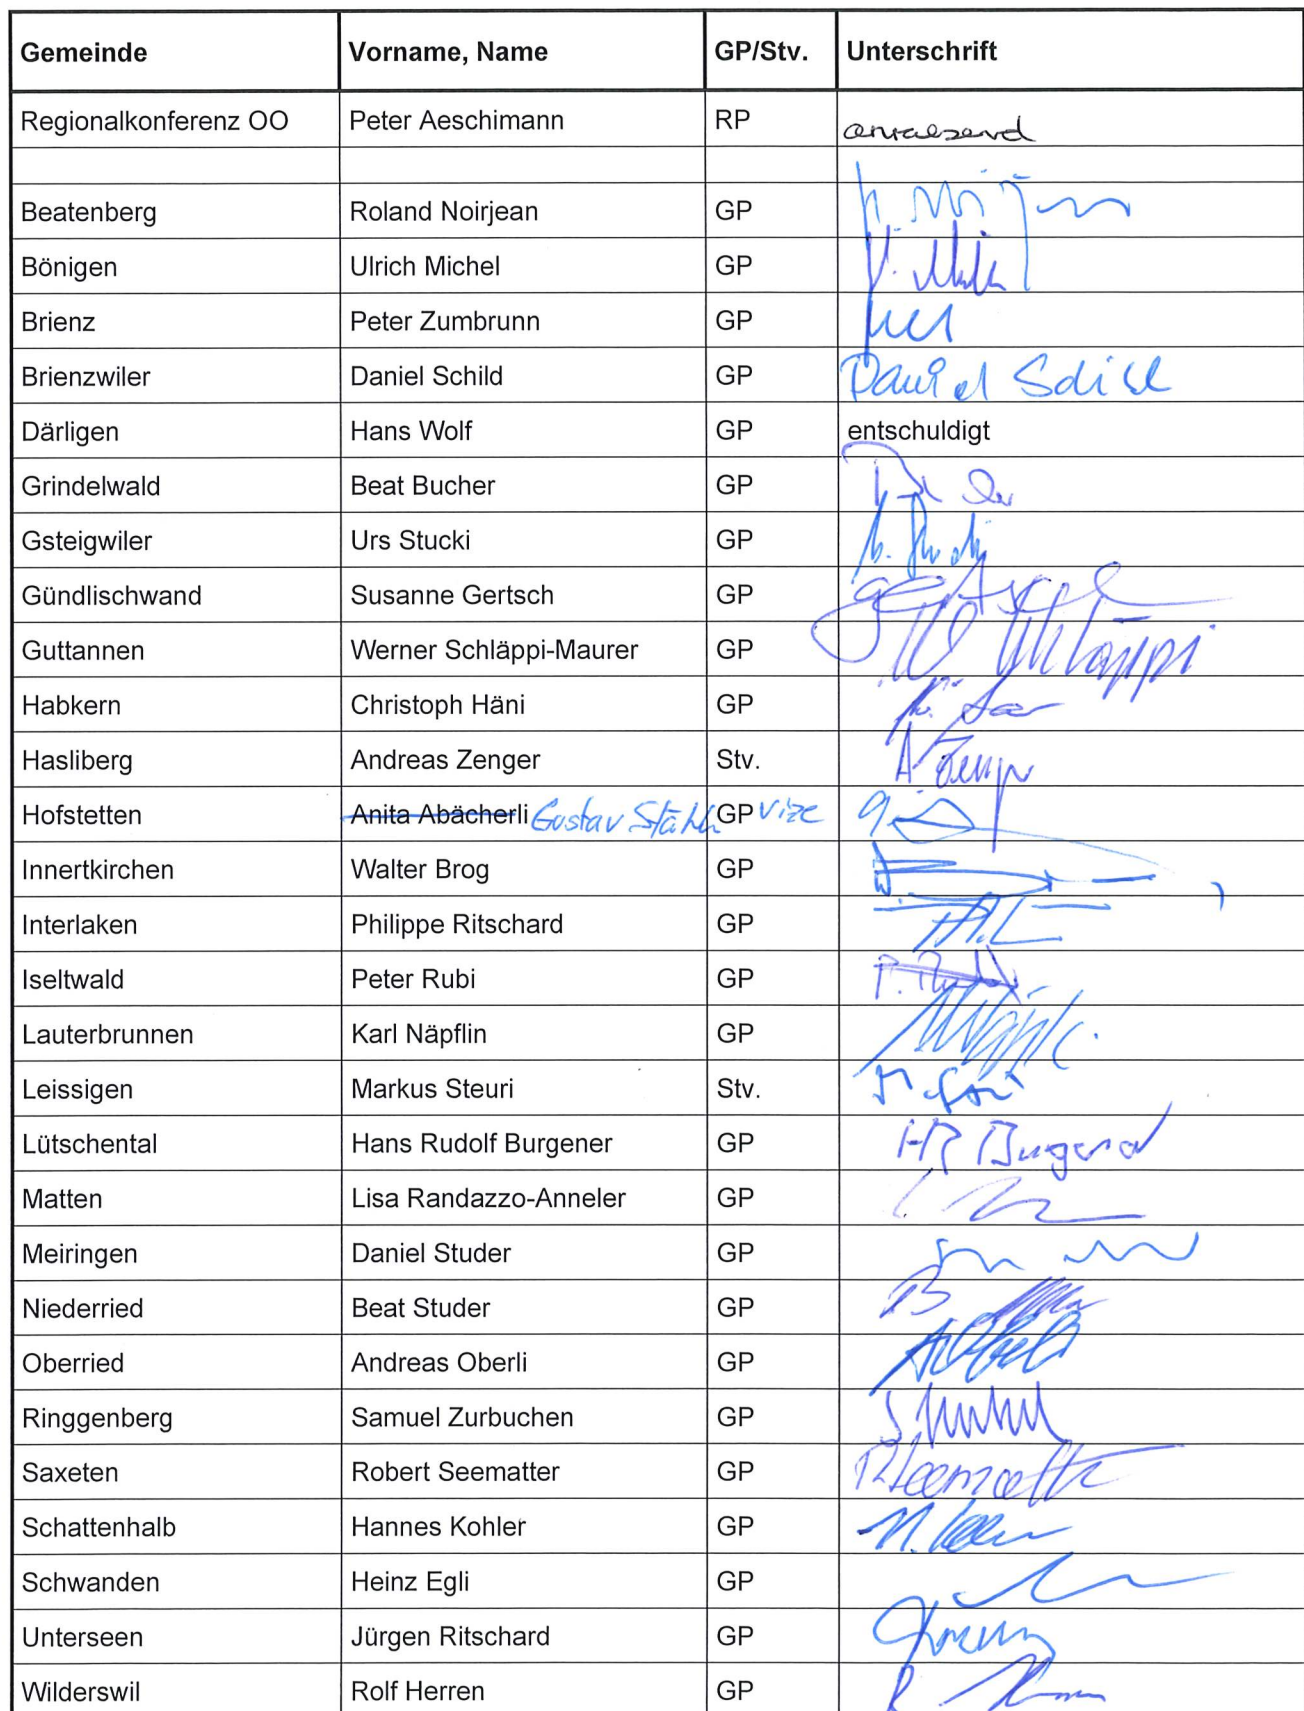 Gemeinde Vorname, Name GP/Stv. Unterschrift
Regionalkonferenz OO Peter Aeschimann RP anwesend
Beatenberg Roland Noirjean GP
Bönigen Ulrich Michel GP
Brienz Peter Zumbrunn GP
Brienzwiler Daniel Schild GP Daniel Schild
Därligen Hans Wolf GP entschuldigt
Grindelwald Beat Bucher GP
Gsteigwiler Urs Stucki GP
Gündlischwand Susanne Gertsch GP Gertsch
Guttannen Werner Schläppi-Maurer GP W Schläppi
Habkern Christoph Häni GP
Hasliberg Andreas Zenger Stv. A Zenger
Hofstetten Anita Abächerli Gustav Stähli GP Vize
Innertkirchen Walter Brog GP
Interlaken Philippe Ritschard GP
Iseltwald Peter Rubi GP P. Rubi
Lauterbrunnen Karl Näpflin GP
Leissigen Markus Steuri Stv.
Lütschental Hans Rudolf Burgener GP HR Burgener
Matten Lisa Randazzo-Anneler GP
Meiringen Daniel Studer GP
Niederried Beat Studer GP
Oberried Andreas Oberli GP
Ringgenberg Samuel Zurbuchen GP
Saxeten Robert Seematter GP R Seematter
Schattenhalb Hannes Kohler GP
Schwanden Heinz Egli GP
Unterseen Jürgen Ritschard GP
Wilderswil Rolf Herren GP